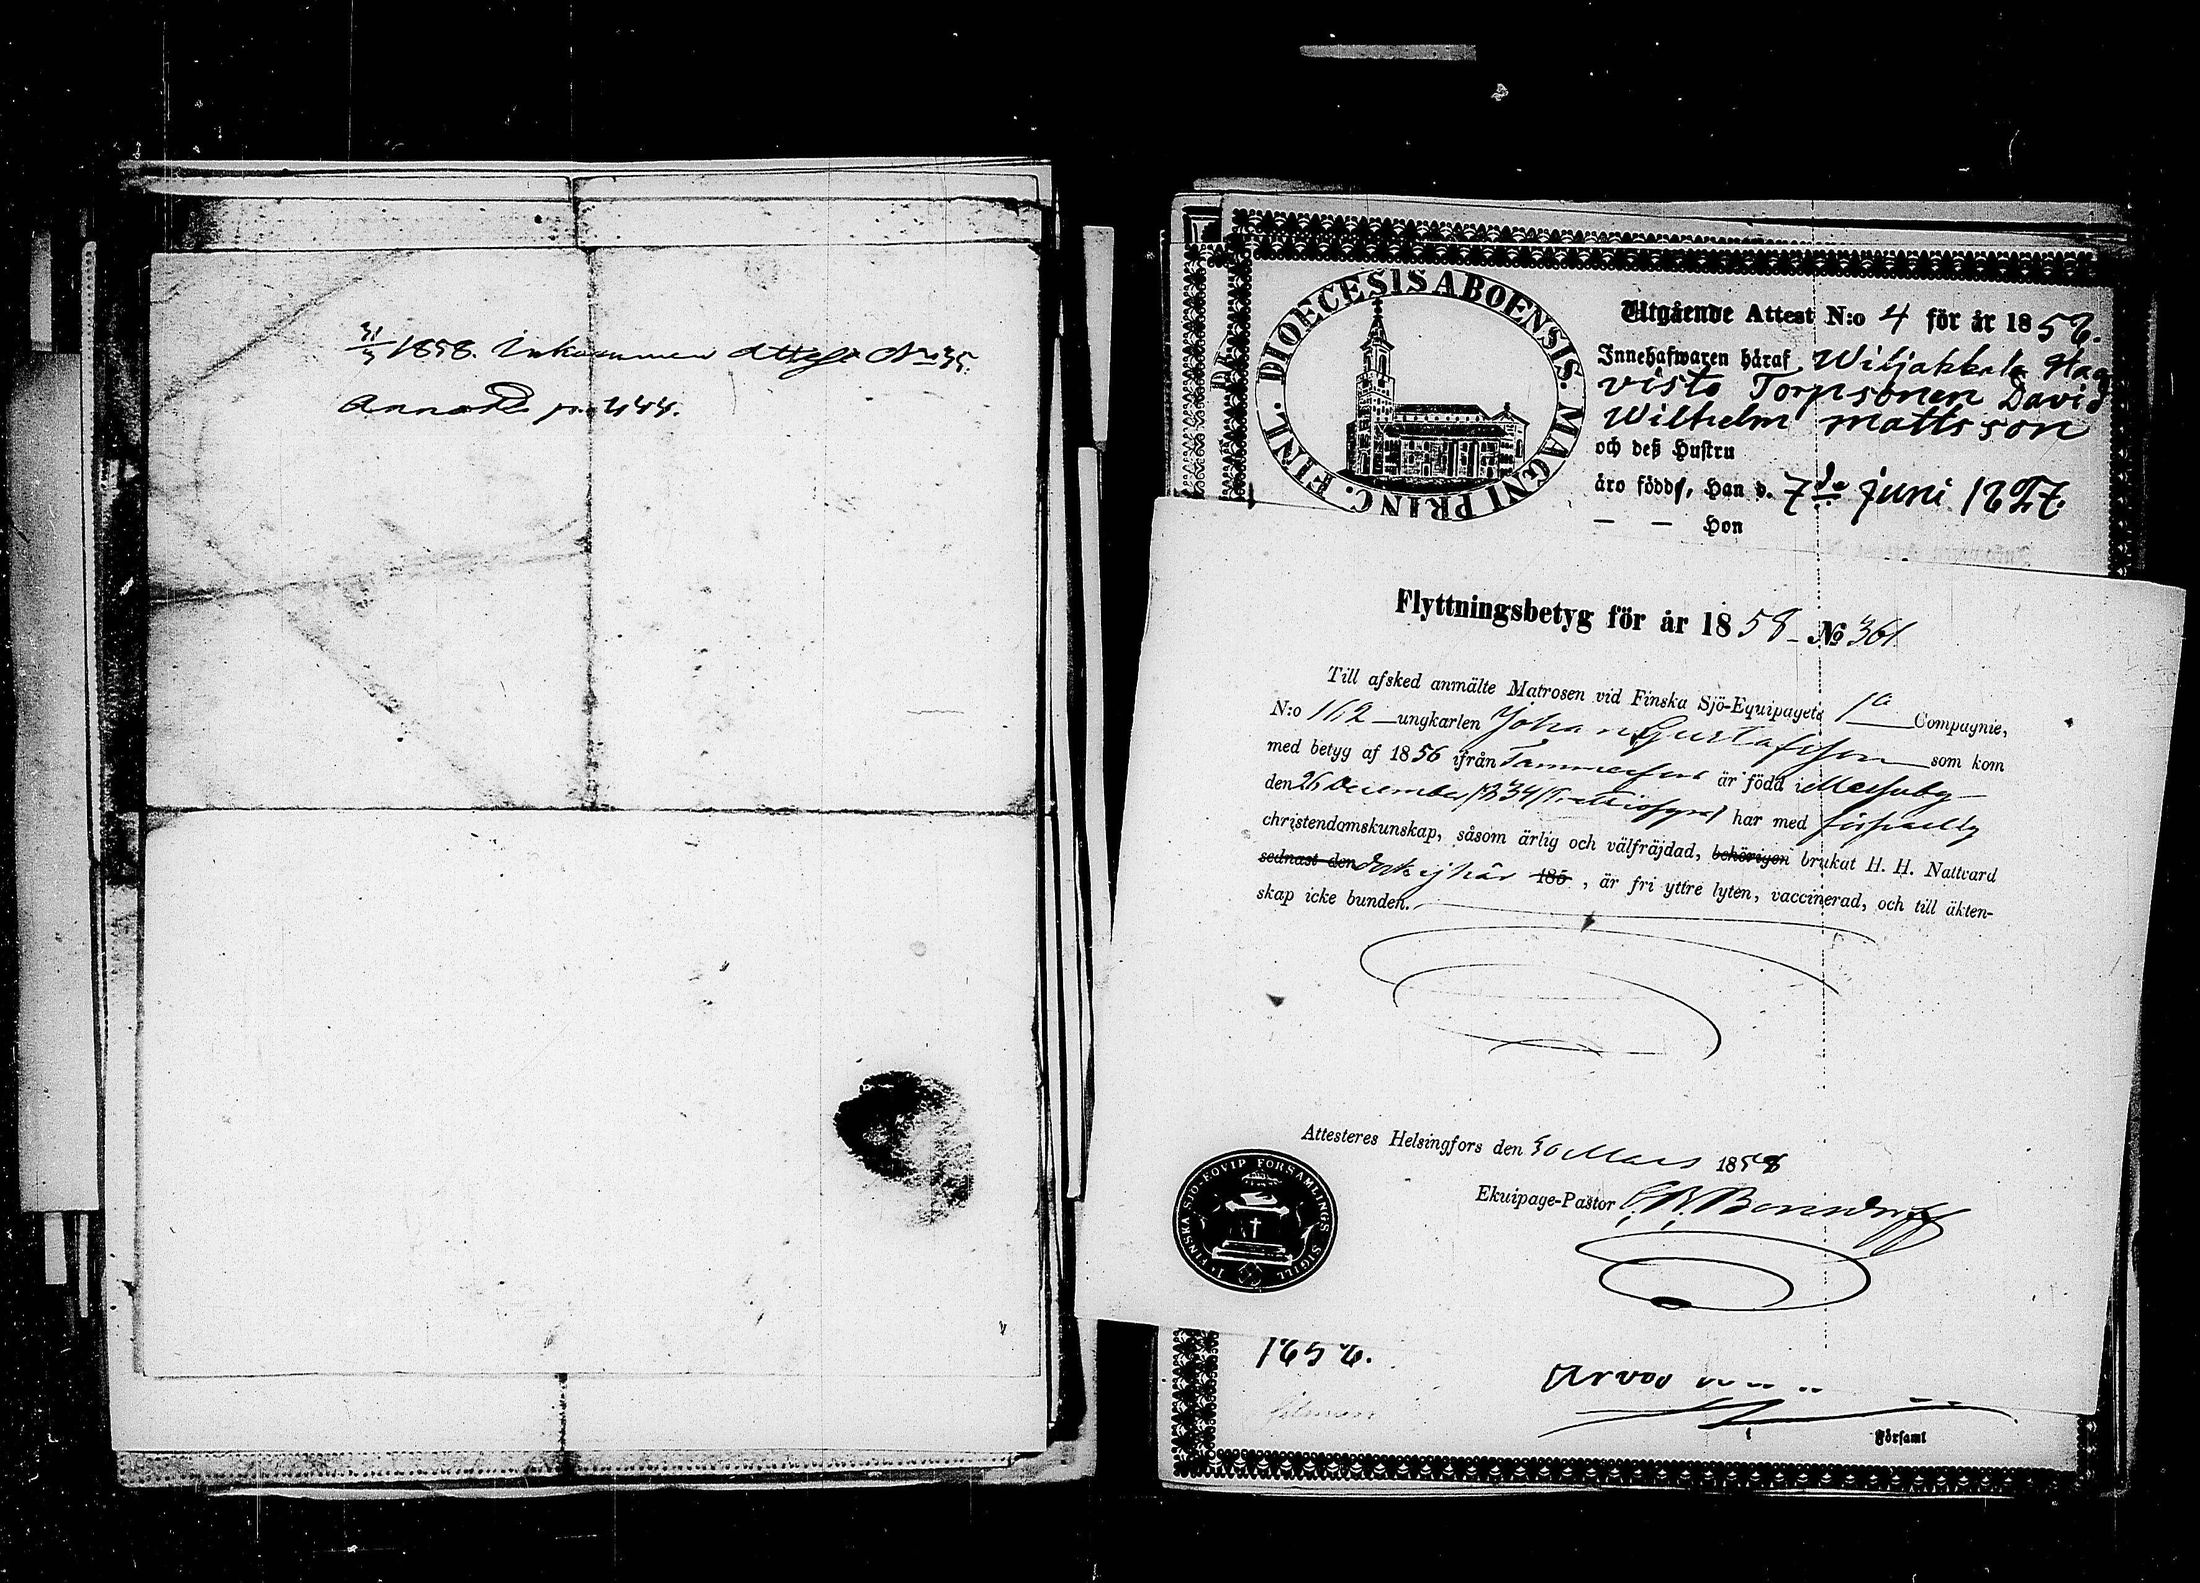 31/3 1858. Inkommen Attest No 35.
Annot. p. 444.
DIOECESIS ABOENSIS. MAGNI PRINC. FINL.
Utgående Attest N:o 4 för år 1858.
Innehafwaren häraf Wiljakkala Haa
visto Torpsonen David
Wilhelm Mattsson
och deß Hustru
äro födde, Han d. 7de Juni 1827.
— — Hon
Flyttningsbetyg för år 1858 — № 361
Till afsked anmälte Matrosen vid Finska Sjö-Equipagets 1a Compagnie,
N:o 162 — ungkarlen Johan Gustafsson — som kom
med betyg af 1856 ifrån Tammerfors är född i Messuby
den 26 December 1834 har med
christendomskunskap, såsom ärlig och välfräjdad, behörigen brukat H. H. Nattvard
sednast den dock ej här 185 , är fri yttre lyten, vaccinerad, och till äkten-
skap icke bunden.
Attesteres Helsingfors den 30 Mars 1858
Ekuipage-Pastor Bonsdorff
1a FINSKA SJÖ-EQVIP FÖRSAMLINGS SIGILL
1858.
Församl